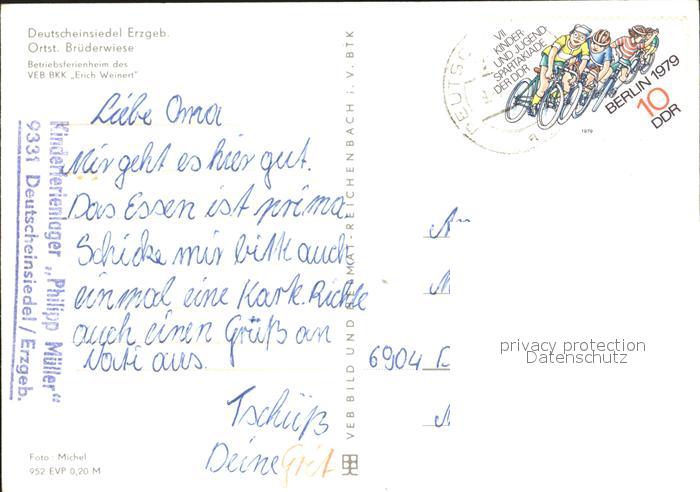 Deutscheinsiedel Erzgeb.
Ortst. Brüderwiese
Betriebsferienheim des
VEB BKK „Erich Weinert"
VII
KINDER-
UND JUGEND-
SPARTAKIADE
DER DDR
BERLIN 1979
10
DDR
1979
DEUTSC
Liebe Oma
Mir geht es hier gut.
Das Essen ist prima.
Schicke mir bitte auch
einmal eine Karte. Richte
auch einen Grüß an
Vati aus.
Tschüß
Deine Grit
Kinderferienlager „Philipp Müller"
9331 Deutscheinsiedel / Erzgeb.
VEB BILD UND HEIMAT REICHENBACH i. V. BTK
An
6904
privacy protection
Datenschutz
Foto: Michel
952 EVP 0,20 M